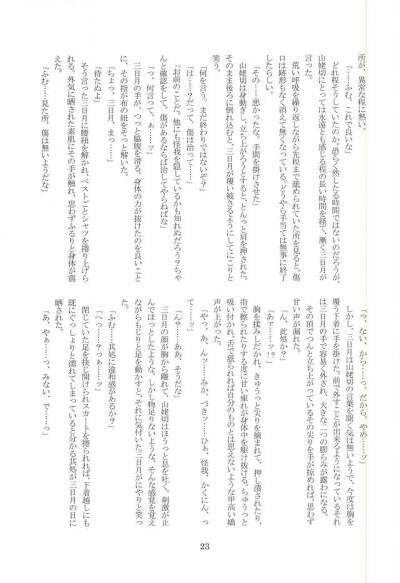 所が、異常な程に熱い。
「……ふむ、これで良いな」
どれ程そうしていたのか。恐らく然したる時間ではないのだろうが、
山姥切にとっては永遠とも感じる程の長い時間を経て漸く三日月が
言った。
荒い呼吸を繰り返しながら先程まで舐められていた所を見ると、傷
口は跡形もなく消えて無くなっている。どうやら手当ては無事に終了
したらしい。
「その……悪かったな、手間を掛けさせた」
山姥切は身動ぎし、立ち上がろうとすると、とんっと肩を押された。
そのまま後ろに倒れ込むと、三日月が覆い被さるようにしてにこりと
笑う。
「何を言う。まだ終わりではないぞ？」
「は……？だって、傷は治って……」
「お前のことだ、他にも怪我を隠しているかも知れぬだろう？ちゃ
んと確認をして、傷があるならば治してやらねばな」
「っ、何言って、ぁ……ッ」
三日月の手が、つつと脇腹を滑る。身体の力が抜けたのを良いこと
に、その指が布の紐をそっと解いた。
「ちょっ、三日月、まっ……」
「待たぬよ」
そう言った三日月に腰紐を解かれ、ベストごとシャツを捲り上げら
れる。外気に晒された素肌にその手が触れ、思わずふるりと身体が震
えた。
「ふむ……見た所、傷は無いようだな」
「っ、ない、から……っ、だから、やめ……ッ」
しかし、三日月は山姥切の言葉を聞く気は無いようで、今度は胸を
覆う下着に手を掛けた。前で外すことが出来るようになっているそれ
は三日月の手で容易く外され、大きな二つの膨らみが露わになる。
その頂でつんと立ち上がっているその尖りを手が掠めれば、思わず
甘い声が漏れた。
「あァ……ッ！？」
「ん、此処か？」
胸を揉みしだかれ、きゅうっと尖りを摘まれて、押し潰されたり、
指で擦られたりする度に甘い痺れが身体中を駆け抜ける。ちゅうっと
吸い付かれ、舌で舐られれば自分のものとは思えないような甲高い嬌
声が上がった。
「やっ、あ、んッ……みか、づきッ……ひぁ、怪我、かくにん、っ
て……ッ」
「ん？……ああ、そうだな」
三日月の顔が胸から離れて、山姥切はほうっと息を吐く。刺激が止
んでほっとしたような、しかし物足りないような、そんな感覚を覚え
ながらもじりと足を動かすと、それに気付いた三日月がにやりと笑っ
た。
「ふむ……其処に違和感があるか？」
「へっ……？つぁ……ッ」
閉じていた足を抉じ開けられスカートを捲られれば、下着越しにも
既にぐっしょりと濡れてしまっていると分かる其処が三日月の目に
晒された。
「あ、やぁ……っ、みない、で……っ」
23